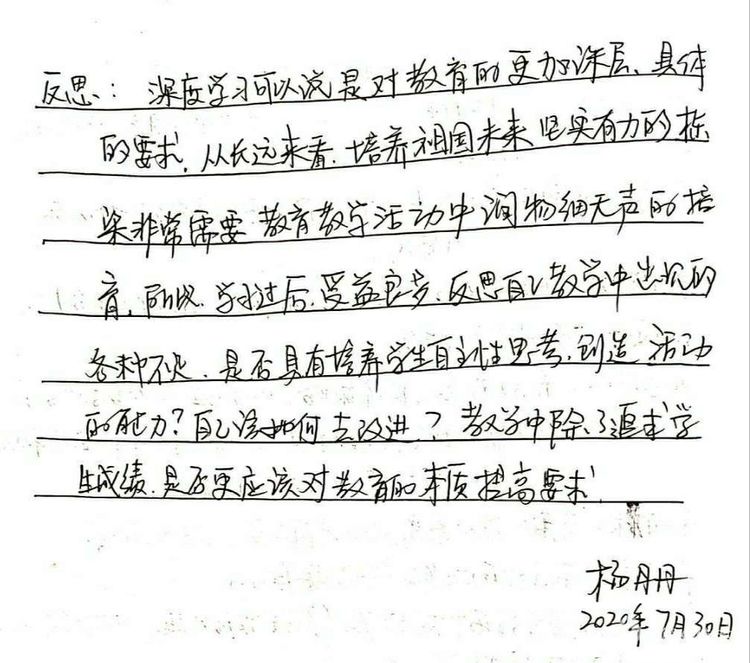 反思：深度学习可以说是对教育的更加深层、具体
的要求，从长远来看，培养祖国未来坚实有力的栋
梁非常需要教育教学活动中润物细无声的培
育，所以，学习过后，受益良多，反思自己教学中出现的
各种不足，是否具有培养学生自主性思考、创造活动
的能力？自己该如何去改进？教学中除了追求学
生成绩，是否更应该对教育的本质提高要求
杨丹丹
2020年7月30日